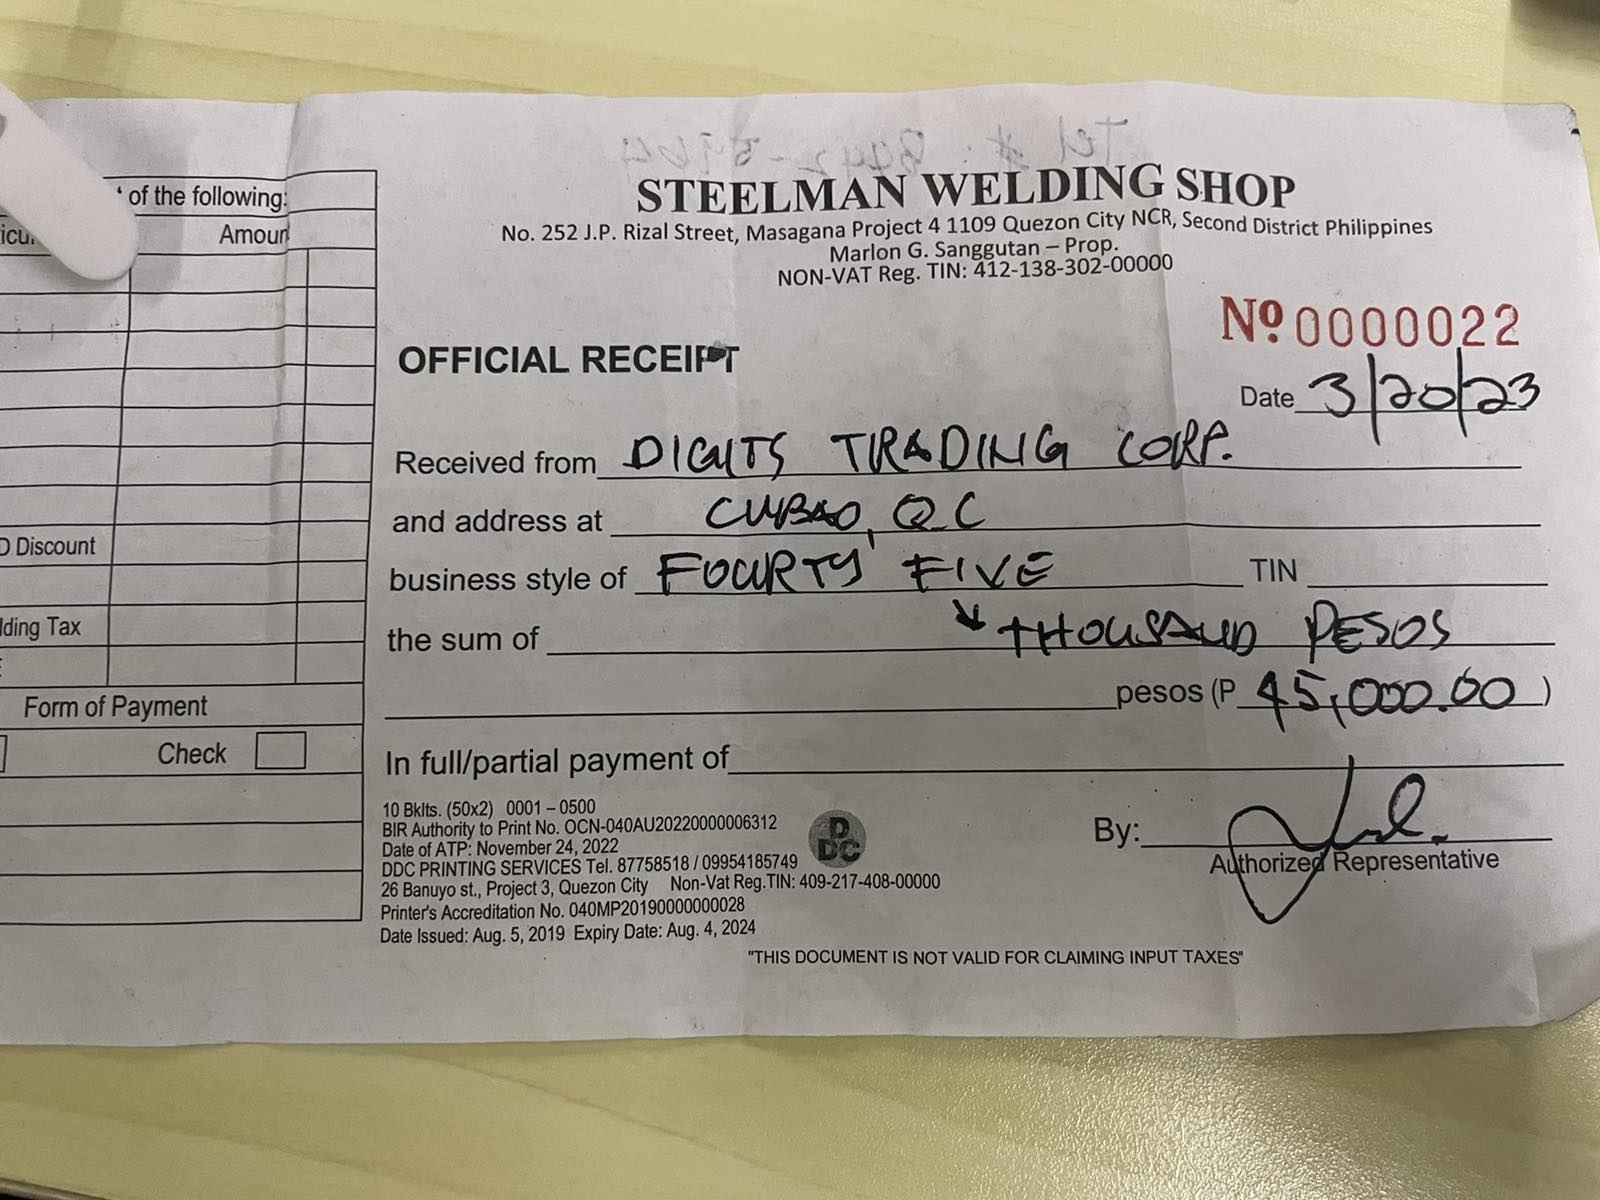 Tel #: 8442-5964
STEELMAN WELDING SHOP
No. 252 J.P. Rizal Street, Masagana Project 4 1109 Quezon City NCR, Second District Philippines
Marlon G. Sanggutan – Prop.
NON-VAT Reg. TIN: 412-138-302-00000
Nº 0000022
OFFICIAL RECEIPT
Date 3/20/23
Received from DIGITS TRADING CORP.
and address at CUBAO, QC
business style of FOURTY FIVE TIN
the sum of THOUSAND PESOS
pesos (P 45,000.00 )
In full/partial payment of
10 Bklts. (50x2) 0001 – 0500
BIR Authority to Print No. OCN-040AU20220000006312
Date of ATP: November 24, 2022
DDC PRINTING SERVICES Tel. 87758518 / 09954185749
26 Banuyo st., Project 3, Quezon City Non-Vat Reg.TIN: 409-217-408-00000
Printer's Accreditation No. 040MP20190000000028
Date Issued: Aug. 5, 2019 Expiry Date: Aug. 4, 2024
D
DC
By:
Authorized Representative
"THIS DOCUMENT IS NOT VALID FOR CLAIMING INPUT TAXES"
of the following:
Amoun
D Discount
lding Tax
Form of Payment
Check